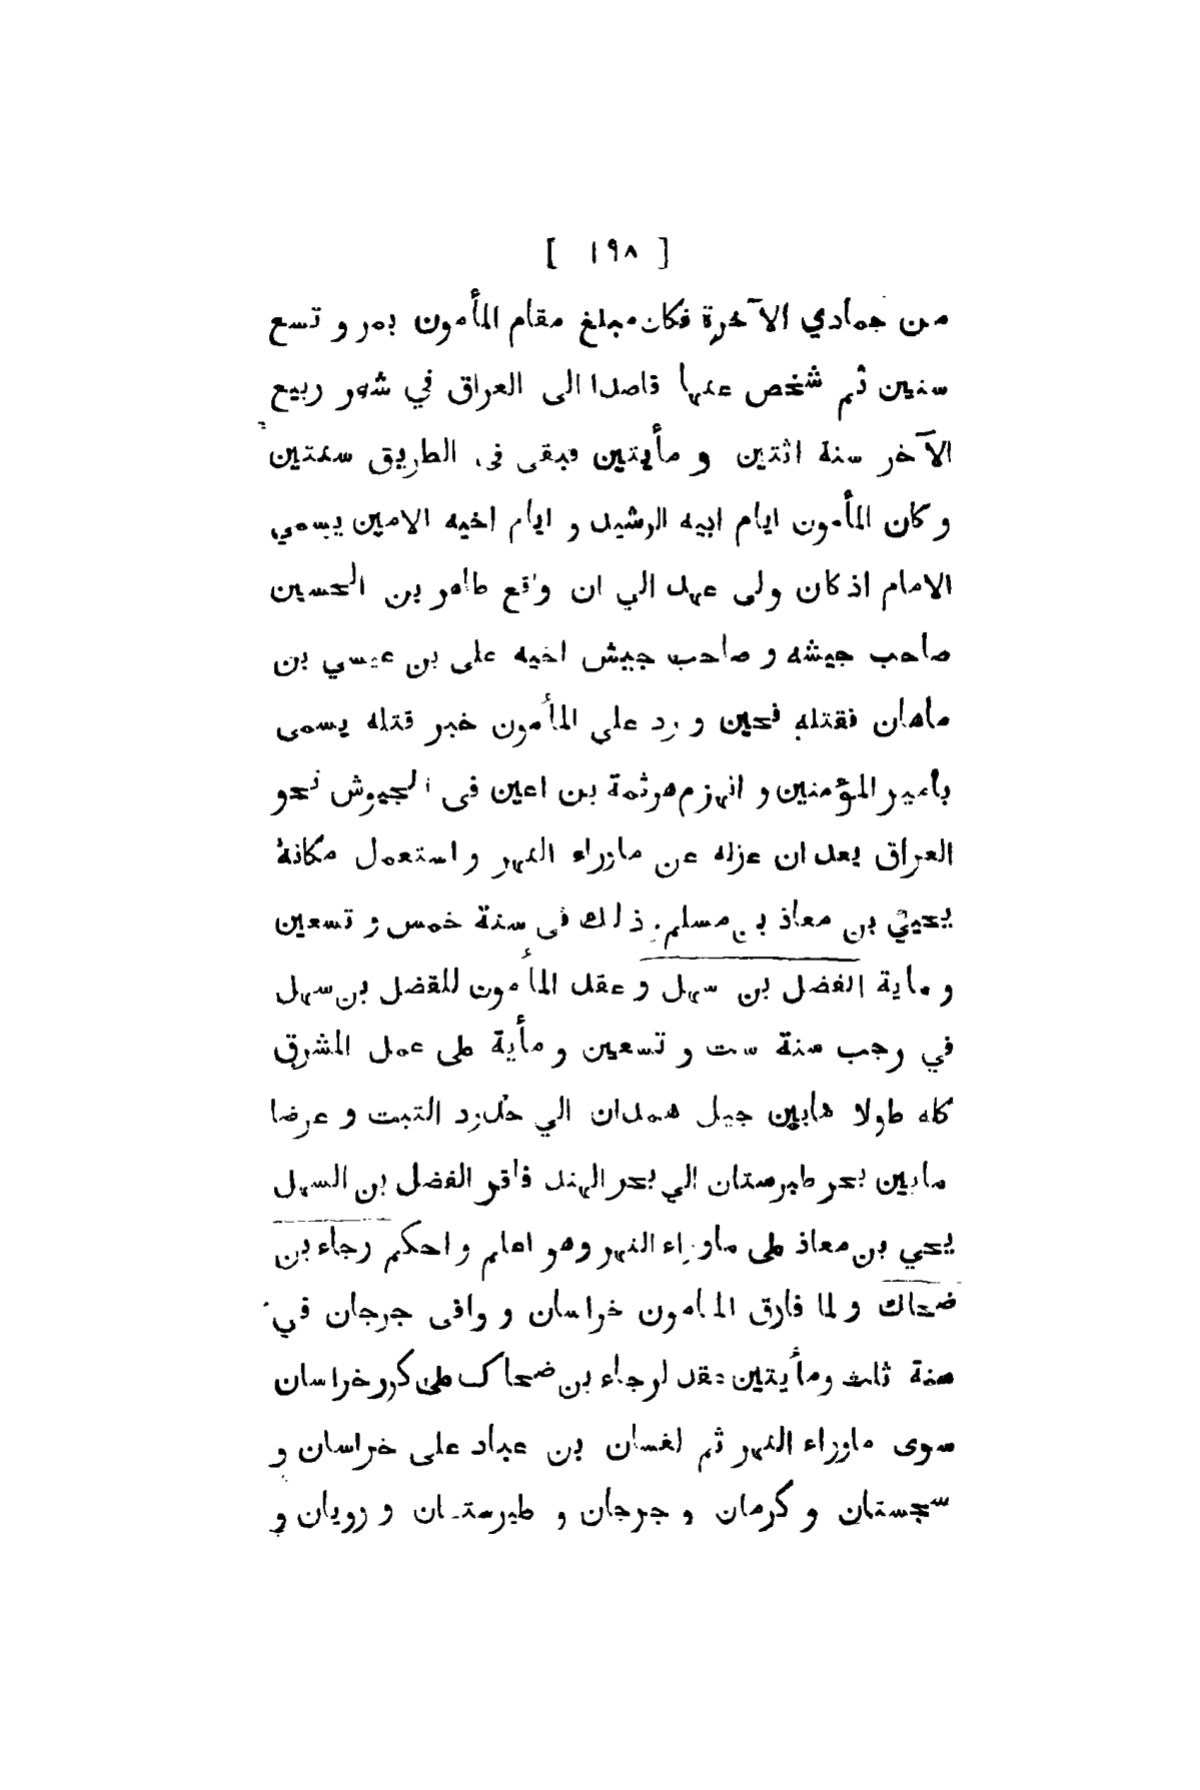 [ ١٩٨ ]
من جمادي الآخرة فكان مبلغ مقام المأمون بمر و تسع
سنين ثم شخص عنها قاصدا الى العراق في شهر ربيع
الآخر سنة اثنتين و مأيتين فبقى فى الطريق سنتين
و كان المأمون ايام ابيه الرشيد و ايام اخيه الامين يسمي
الامام اذ كان ولى عهد الي ان واقع طاهر بن الحسين
صاحب جيشه و صاحب جيش اخيه على بن عيسي بن
ماهان فقتله فحين و رد علي المأمون خبر قتله يسمى
بأمير المؤمنين و انهزم هرثمة بن اعين فى الجيوش نحو
العراق بعد ان عزله عن ماوراء النهر و استعمل مكانة
يحيي بن معاذ بن مسلم. ذلك فى سنة خمس و تسعين
و ماية الفضل بن سهل و عقد المأمون للقضل بن سهل
في رجب سنة ست و تسعين و مأية على عمل المشرق
كله طولا مابين جبل همدان الي التبت و عرضا
مابين بحر طبرستان الي بحر الهند فاقر الفضل بن السهل
يحي بن معاذ على ماوراء النهر وهو اعلم و احكم رجاء بن
ضحاك و لما فارق المامون خراسان و وافى جرجان في
سنة ثلث ومأيتين عقد لرجاء بن ضحاك على كور خراسان
سوى ماوراء النهر ثم لغسان بن عباد على خراسان و
سجستان و كرمان و جرجان و طبرستان و رويان و